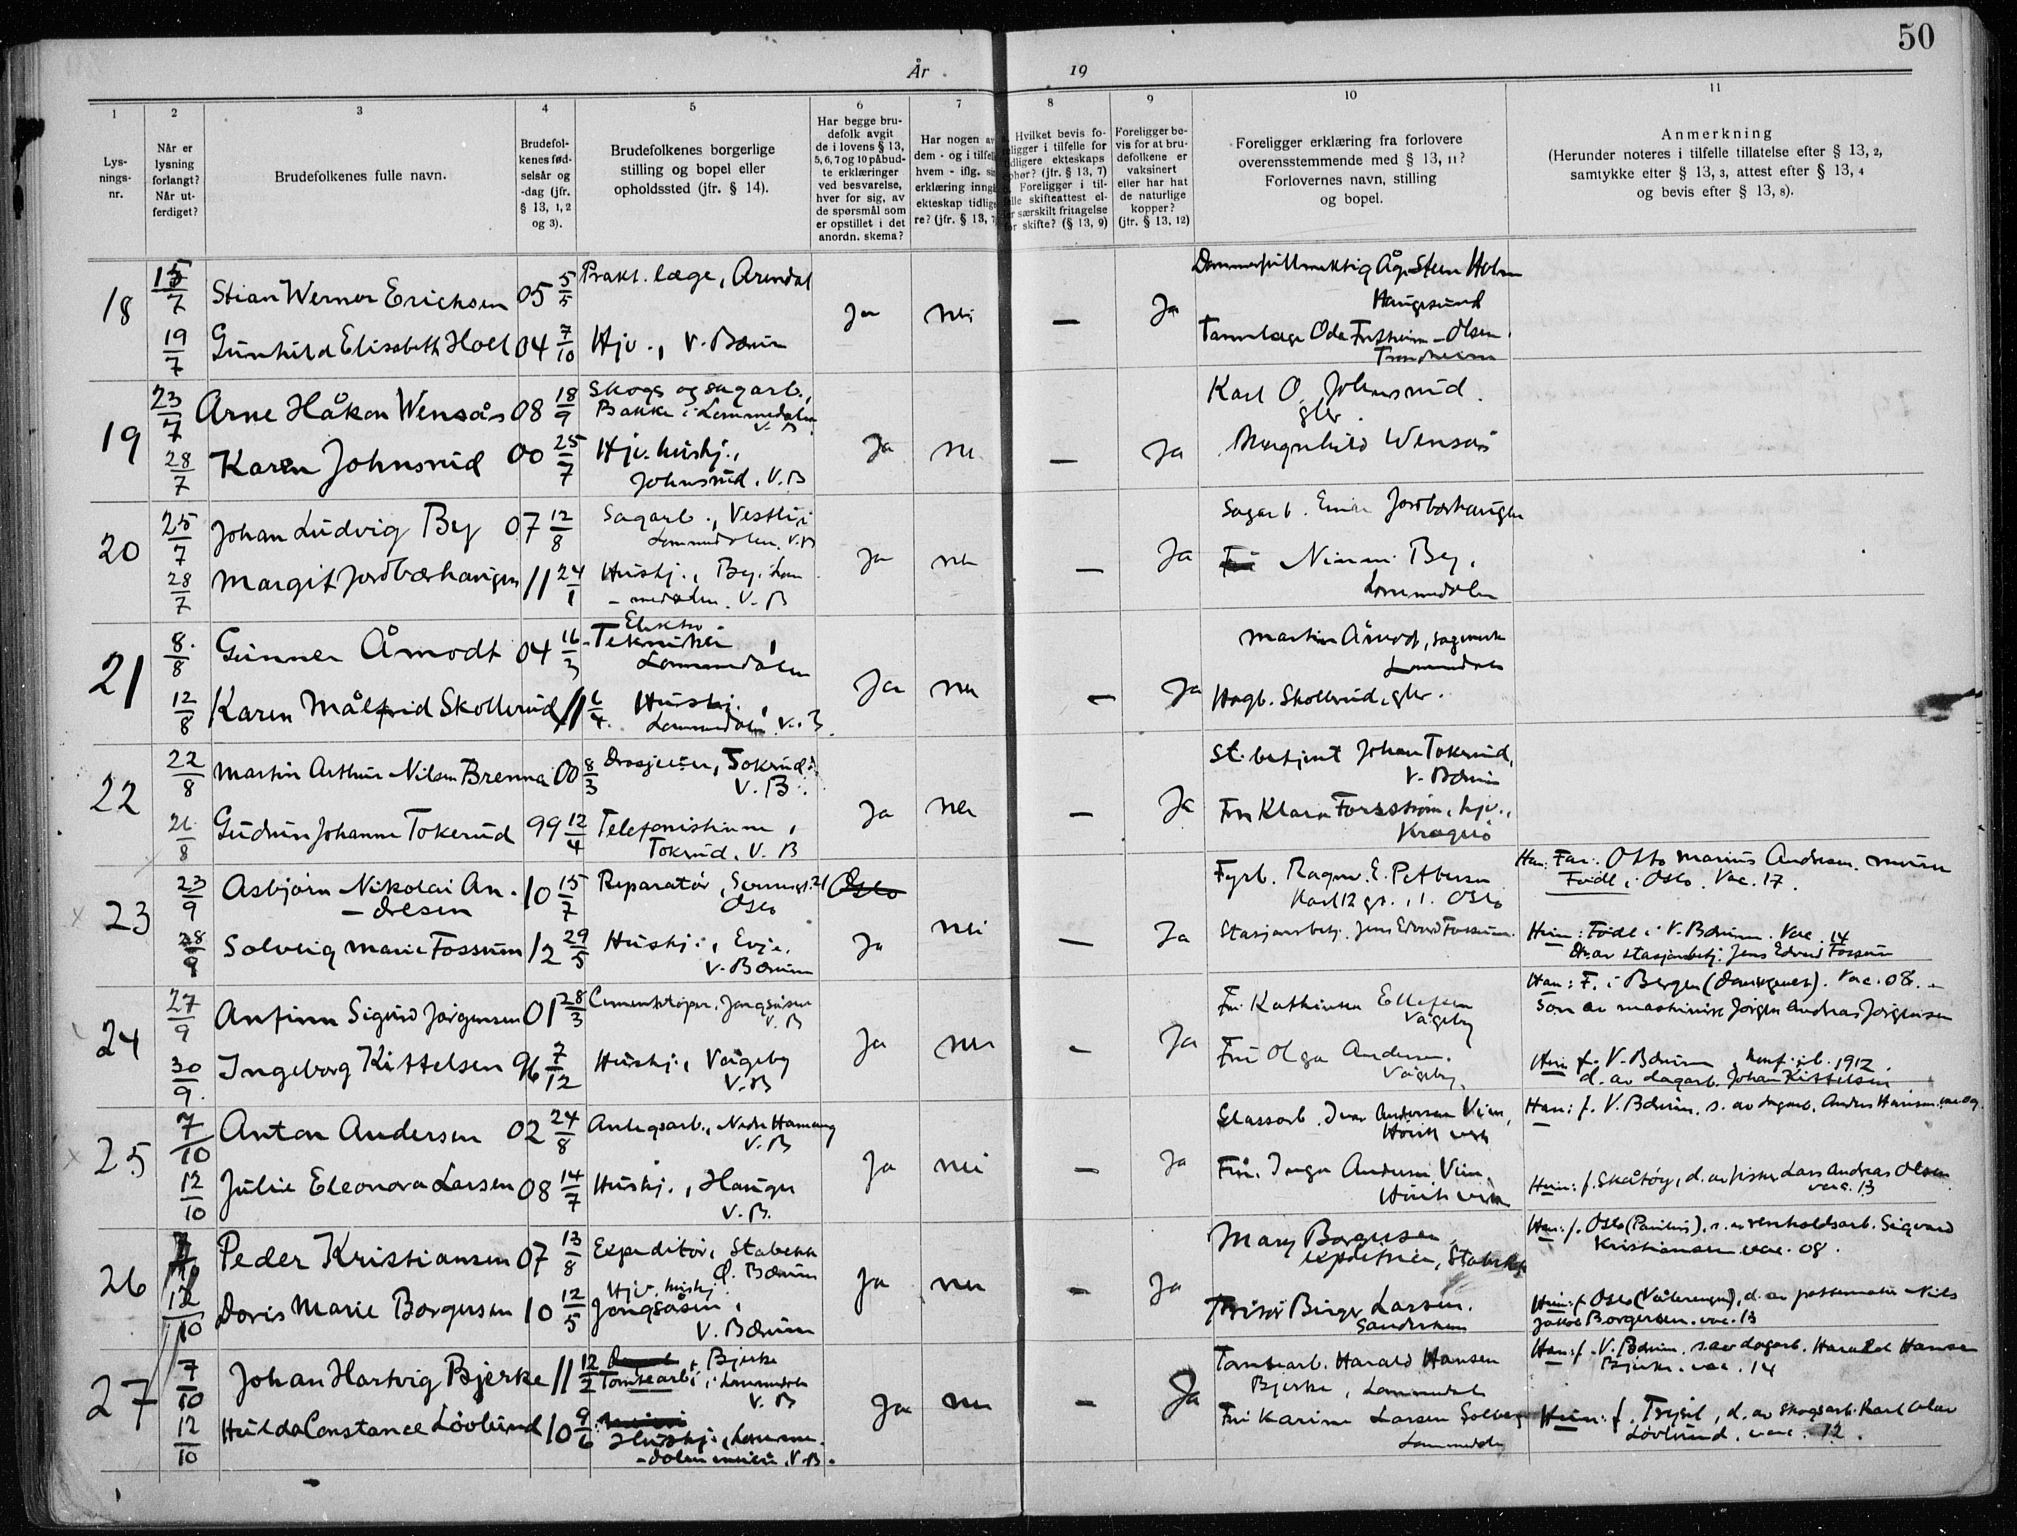 50
År 19
1 2 3 4 5 6 7 8 9 10 11
Lys-
nings-
nr.
Når er
lysning
forlangt?
Når ut-
ferdiget?
Brudefolkenes fulle navn.
Brudefol-
kenes fød-
selsår og
-dag (jfr.
§ 13, 1, 2
og 3).
Brudefolkenes borgerlige
stilling og bopel eller
opholdssted (jfr. § 14).
Har begge bru-
defolk avgit
de i lovens § 13,
5, 6, 7 og 10 påbud-
te erklæringer
ved besvarelse,
hver for sig, av
de spørsmål som
er opstillet i det
anordn. skema?
Har nogen av
dem - og i tilfelle
hvem - iflg. sin
erklæring inngå
ekteskap tidlige-
re? (jfr. § 13, 7
Hvilket bevis fo-
religger i tilfelle for
tidligere ekteskaps
ophør? (jfr. § 13, 7)
Foreligger i til-
felle skifteattest el-
ler særskilt fritagelse
for skifte? (§ 13, 9)
Foreligger be-
vis for at bru-
defolkene er
vaksinert
eller har hat
de naturlige
kopper?
(jfr. § 13, 12)
Foreligger erklæring fra forlovere
overensstemmende med § 13, 11?
Forlovernes navn, stilling
og bopel.
Anmerkning
(Herunder noteres i tilfelle tillatelse efter § 13, 2,
samtykke efter § 13, 3, attest efter § 13, 4
og bevis efter § 13, 8).
18 15/7 Stian Werner Erichsen 05 5/5 Prakt. læge, Arendal Ja nei — Ja Åge Steen Holm
Haugesund
19/7 Gunhild Elisabeth Holl 04 7/10 Hjv., V. Bærum Tannlæge Oda Olsen
Trondheim
19 23/7 Arne Håkon Wensås 08 18/9 Skogs og sagarb.,
Bakke i Lommedalen
V. B Ja nei — Ja Karl O. Johnsrud
gbr.
28/7 Karen Johnsrud 00 25/7 Hjv. hushj.,
Johnsrud. V. B Magnhild Wensås
20 25/7 Johan Ludvig By 07 12/8 Sagarb., Vestli i
Lommedalen. V. B Ja nei — Ja Sagarb. Einar Jordbærhaugen
28/7 Margit Jordbærhaugen 11 24/1 Hushj., By. Lom
-medalen. V. B Fru Ninni By,
Lommedalen
21 8/8 Gunnar Åmodt 04 16/3 Elektro
-Tekniker,
Lommedalen Ja nei — Ja Martin Åmodt,
Lommedalen
12/8 Karen Målfrid Skollerud 11 6/4 Hushj.,
Lommedalen. V. B. Hagb. Skollerud, gbr.
22 22/8 Martin Arthur Nilsen Brenna 00 8/3 Drosjeeier, Tokerud
V. B. Ja nei — Ja St. betjent Johan Tokerud,
V. Bærum
26/8 Gudrun Johanne Tokerud 99 12/4 Telefonistinne,
Tokerud. V. B Fru Klara Forsstrøm, hjv.,
Kragerø
23 23/9 Asbjørn Nikolai An-
-dresen 10 15/7 Reparatør, 21
Oslo Oslo Ja nei — Ja Fyrb. Ragnv. E. Pettersen
Karl 12 gt. 1. Oslo Han: Far: Otto Marius Andresen. murer
Født i Oslo. Vac. 17.
28/9 Solveig Marie Fossum 12 29/5 Hushj., Evje.
V. Bærum Stasjonsbetj. Jens Edvard Fossum. Hun: Født i V. Bærum. Vac. 14
Dtr. av stasjonsbetj. Jens Edvard Fossum
24 27/9 Anfinn Sigurd Jørgensen 01 28/3 Cementstøper. Jongsåsen
V. B Ja nei — Ja Fru Kathinka Ellefsen
Vøgeby Han: F. i Bergen (Domsognet). Vac. 08.
Søn av maskinist Jørgen Andreas Jørgensen
30/9 Ingeborg Kittelsen 96 7/12 Hushj., Vøgeby
V. B Fru Olga Andersen.
Vøgeby. Hun f. V. Bærum, konf. 1912.
d. av dagarb. Johan Kittelsen
25 7/10 Anton Andersen 02 24/8 Anlegsarb., Nedre Hamang
V. B Ja nei — Ja Glassarb. Ivar Andersen Vien,
Høvik verk Han: f. V. Bærum. s. av dagarb. Anders Hansen. vac 09.
12/10 Julie Eleonora Larsen 08 14/7 Hushj., Hauger
V. B. Fru Inga Andersen Vien,
Høvik verk Hun: f. Skåtøy, d. av fisker Lars Andreas Olsen
vac. 13
26 7/10 Peder Kristiansen 07 13/8 Expeditør, Stabekk
Ø. Bærum Ja nei — Ja Mary Borgersen,
expeditrice, Stabekk Han: f. Oslo (Paulus). s. av renholdsarb. Sigvard
Kristiansen vac. 08.
12/10 Doris Marie Borgersen 10 12/5 Hjv. hushj.
Jongsåsen,
V. Bærum Frisør Birger Larsen.
Sandviken Hun: f. Oslo (Vålerengen), d. av Nils
Jakob Borgersen. vac. 13
27 7/10 Johan Hartvig Bjerke 11 12/2 Tomtearb., Bjerke
i Lommedalen
V. B Ja nei — Ja Tomtearb. Harald Hansen
Bjerke, Lommedalen Han: f. V. Bærum. s. av dagarb. Harald Hansen
Bjerke. vac. 14
12/10 Hulda Constance Løvlund 10 9/6 Hushj., Lomme-
-dalen, V. B. Fru Karine Larsen Solberg
Lommedalen Hun: f. Trysil, d. av skogsarb. Karl Olav
Løvlund. vac. 12.